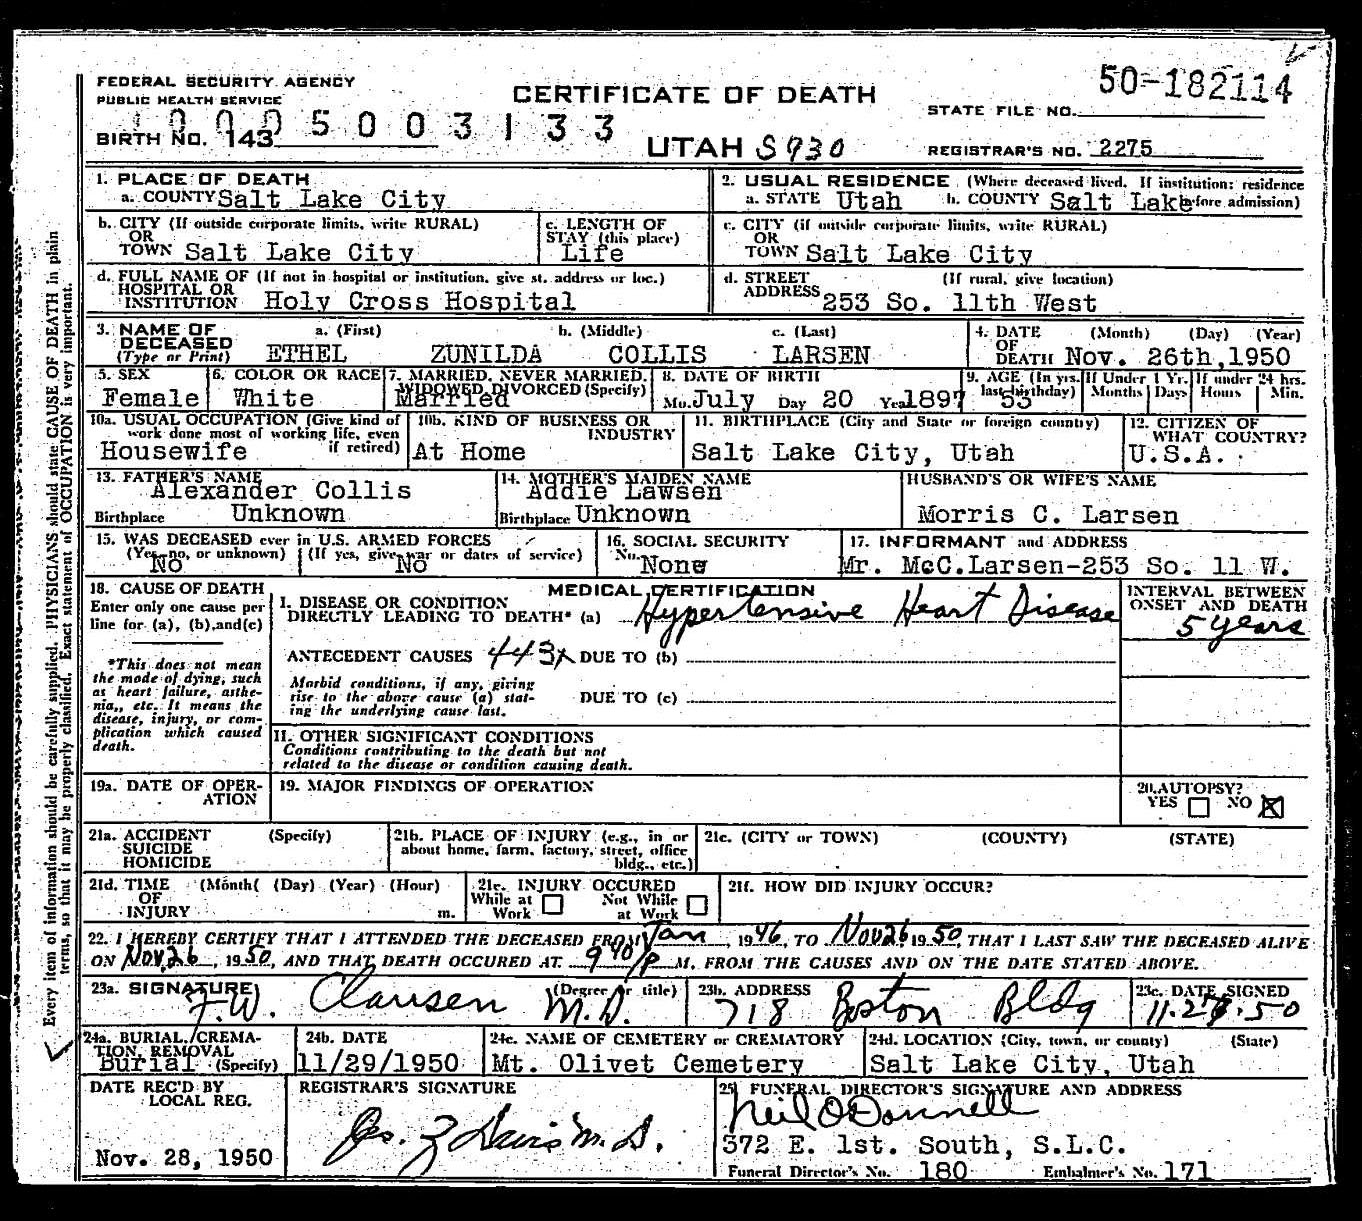 50-182114
FEDERAL SECURITY AGENCY
PUBLIC HEALTH SERVICE
CERTIFICATE OF DEATH
STATE FILE NO.
5003133
BIRTH NO. 143
UTAH S930
REGISTRAR'S NO. 2275
1. PLACE OF DEATH
a. COUNTY Salt Lake City
2. USUAL RESIDENCE (Where deceased lived. If institution: residence before admission)
a. STATE Utah b. COUNTY Salt Lake
b. CITY (If outside corporate limits, write RURAL)
OR
TOWN Salt Lake City
c. LENGTH OF
STAY (this place)
Life
c. CITY (if outside corporate limits, write RURAL)
OR
TOWN Salt Lake City
d. FULL NAME OF (If not in hospital or institution, give st. address or loc.)
HOSPITAL OR
INSTITUTION Holy Cross Hospital
d. STREET (If rural, give location)
ADDRESS 253 So. 11th West
3. NAME OF DECEASED (Type or Print)
a. (First) b. (Middle) c. (Last)
ETHEL ZUNILDA COLLIS LARSEN
4. DATE OF DEATH (Month) (Day) (Year)
Nov. 26th,1950
5. SEX
Female
6. COLOR OR RACE
White
7. MARRIED, NEVER MARRIED,
WIDOWED, DIVORCED (Specify)
Married
8. DATE OF BIRTH
Mo. July Day 20 Year 1897
9. AGE (In yrs. last birthday) 53
If Under 1 Yr. Months Days
If under 24 hrs. Hours Min.
10a. USUAL OCCUPATION (Give kind of
work done most of working life, even
if retired)
Housewife
10b. KIND OF BUSINESS OR
INDUSTRY
At Home
11. BIRTHPLACE (City and State or foreign country)
Salt Lake City, Utah
12. CITIZEN OF
WHAT COUNTRY?
U.S.A.
13. FATHER'S NAME
Alexander Collis
Birthplace Unknown
14. MOTHER'S MAIDEN NAME
Addie Lawsen
Birthplace Unknown
HUSBAND'S OR WIFE'S NAME
Morris C. Larsen
15. WAS DECEASED ever in U.S. ARMED FORCES
(Yes, no, or unknown) (If yes, give war or dates of service)
No No
16. SOCIAL SECURITY
No. None
17. INFORMANT and ADDRESS
Mr. McC.Larsen-253 So. 11 W.
18. CAUSE OF DEATH
Enter only one cause per
line for (a), (b),and(c)
*This does not mean
the mode of dying, such
as heart failure, asthe-
nia,, etc. It means the
disease, injury, or com-
plication which caused
death.
MEDICAL CERTIFICATION
I. DISEASE OR CONDITION
DIRECTLY LEADING TO DEATH* (a) Hypertensive Heart Disease
INTERVAL BETWEEN
ONSET AND DEATH
5 years
ANTECEDENT CAUSES 443x DUE TO (b)
Morbid conditions, if any, giving
rise to the above cause (a) stat-
ing the underlying cause last.
DUE TO (c)
II. OTHER SIGNIFICANT CONDITIONS
Conditions contributing to the death but not
related to the disease or condition causing death.
19a. DATE OF OPER-
ATION
19. MAJOR FINDINGS OF OPERATION
20. AUTOPSY?
YES NO X
21a. ACCIDENT (Specify)
SUICIDE
HOMICIDE
21b. PLACE OF INJURY (e.g., in or
about home, farm, factory, street, office
bldg., etc.)
21c. (CITY or TOWN) (COUNTY) (STATE)
21d. TIME (Month( (Day) (Year) (Hour)
OF
INJURY m.
21e. INJURY OCCURED
While at Work Not While at Work
21f. HOW DID INJURY OCCUR?
22. I HEREBY CERTIFY THAT I ATTENDED THE DECEASED FROM Jan 1946, TO Nov 26 1950, THAT I LAST SAW THE DECEASED ALIVE
ON Nov. 26, 1950, AND THAT DEATH OCCURED AT 9 40/P M. FROM THE CAUSES AND ON THE DATE STATED ABOVE.
23a. SIGNATURE (Degree or title)
F.W. Clausen M.D.
23b. ADDRESS
718 Boston Bldg
23c. DATE SIGNED
11.27.50
24a. BURIAL, CREMA-
TION, REMOVAL
Burial (Specify)
24b. DATE
11/29/1950
24c. NAME OF CEMETERY or CREMATORY
Mt. Olivet Cemetery
24d. LOCATION (City, town, or county) (State)
Salt Lake City, Utah
DATE REC'D BY
LOCAL REG.
Nov. 28, 1950
REGISTRAR'S SIGNATURE
Jos. Z Davis M.D.
25. FUNERAL DIRECTOR'S SIGNATURE AND ADDRESS
Neil O'Donnell
372 E. 1st. South, S.L.C.
Funeral Director's No. 180 Embalmer's No. 171
Every item of information should be carefully supplied. PHYSICIANS should state CAUSE OF DEATH in plain
terms, so that it may be properly classified. Exact statement of OCCUPATION is very important.